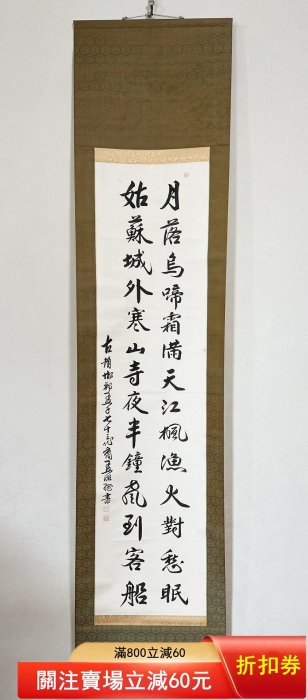 月落烏啼霜滿天江楓漁火對愁眠
姑蘇城外寒山寺夜半鐘聲到客船
滿800立減60
關注賣場立減60元
折扣券